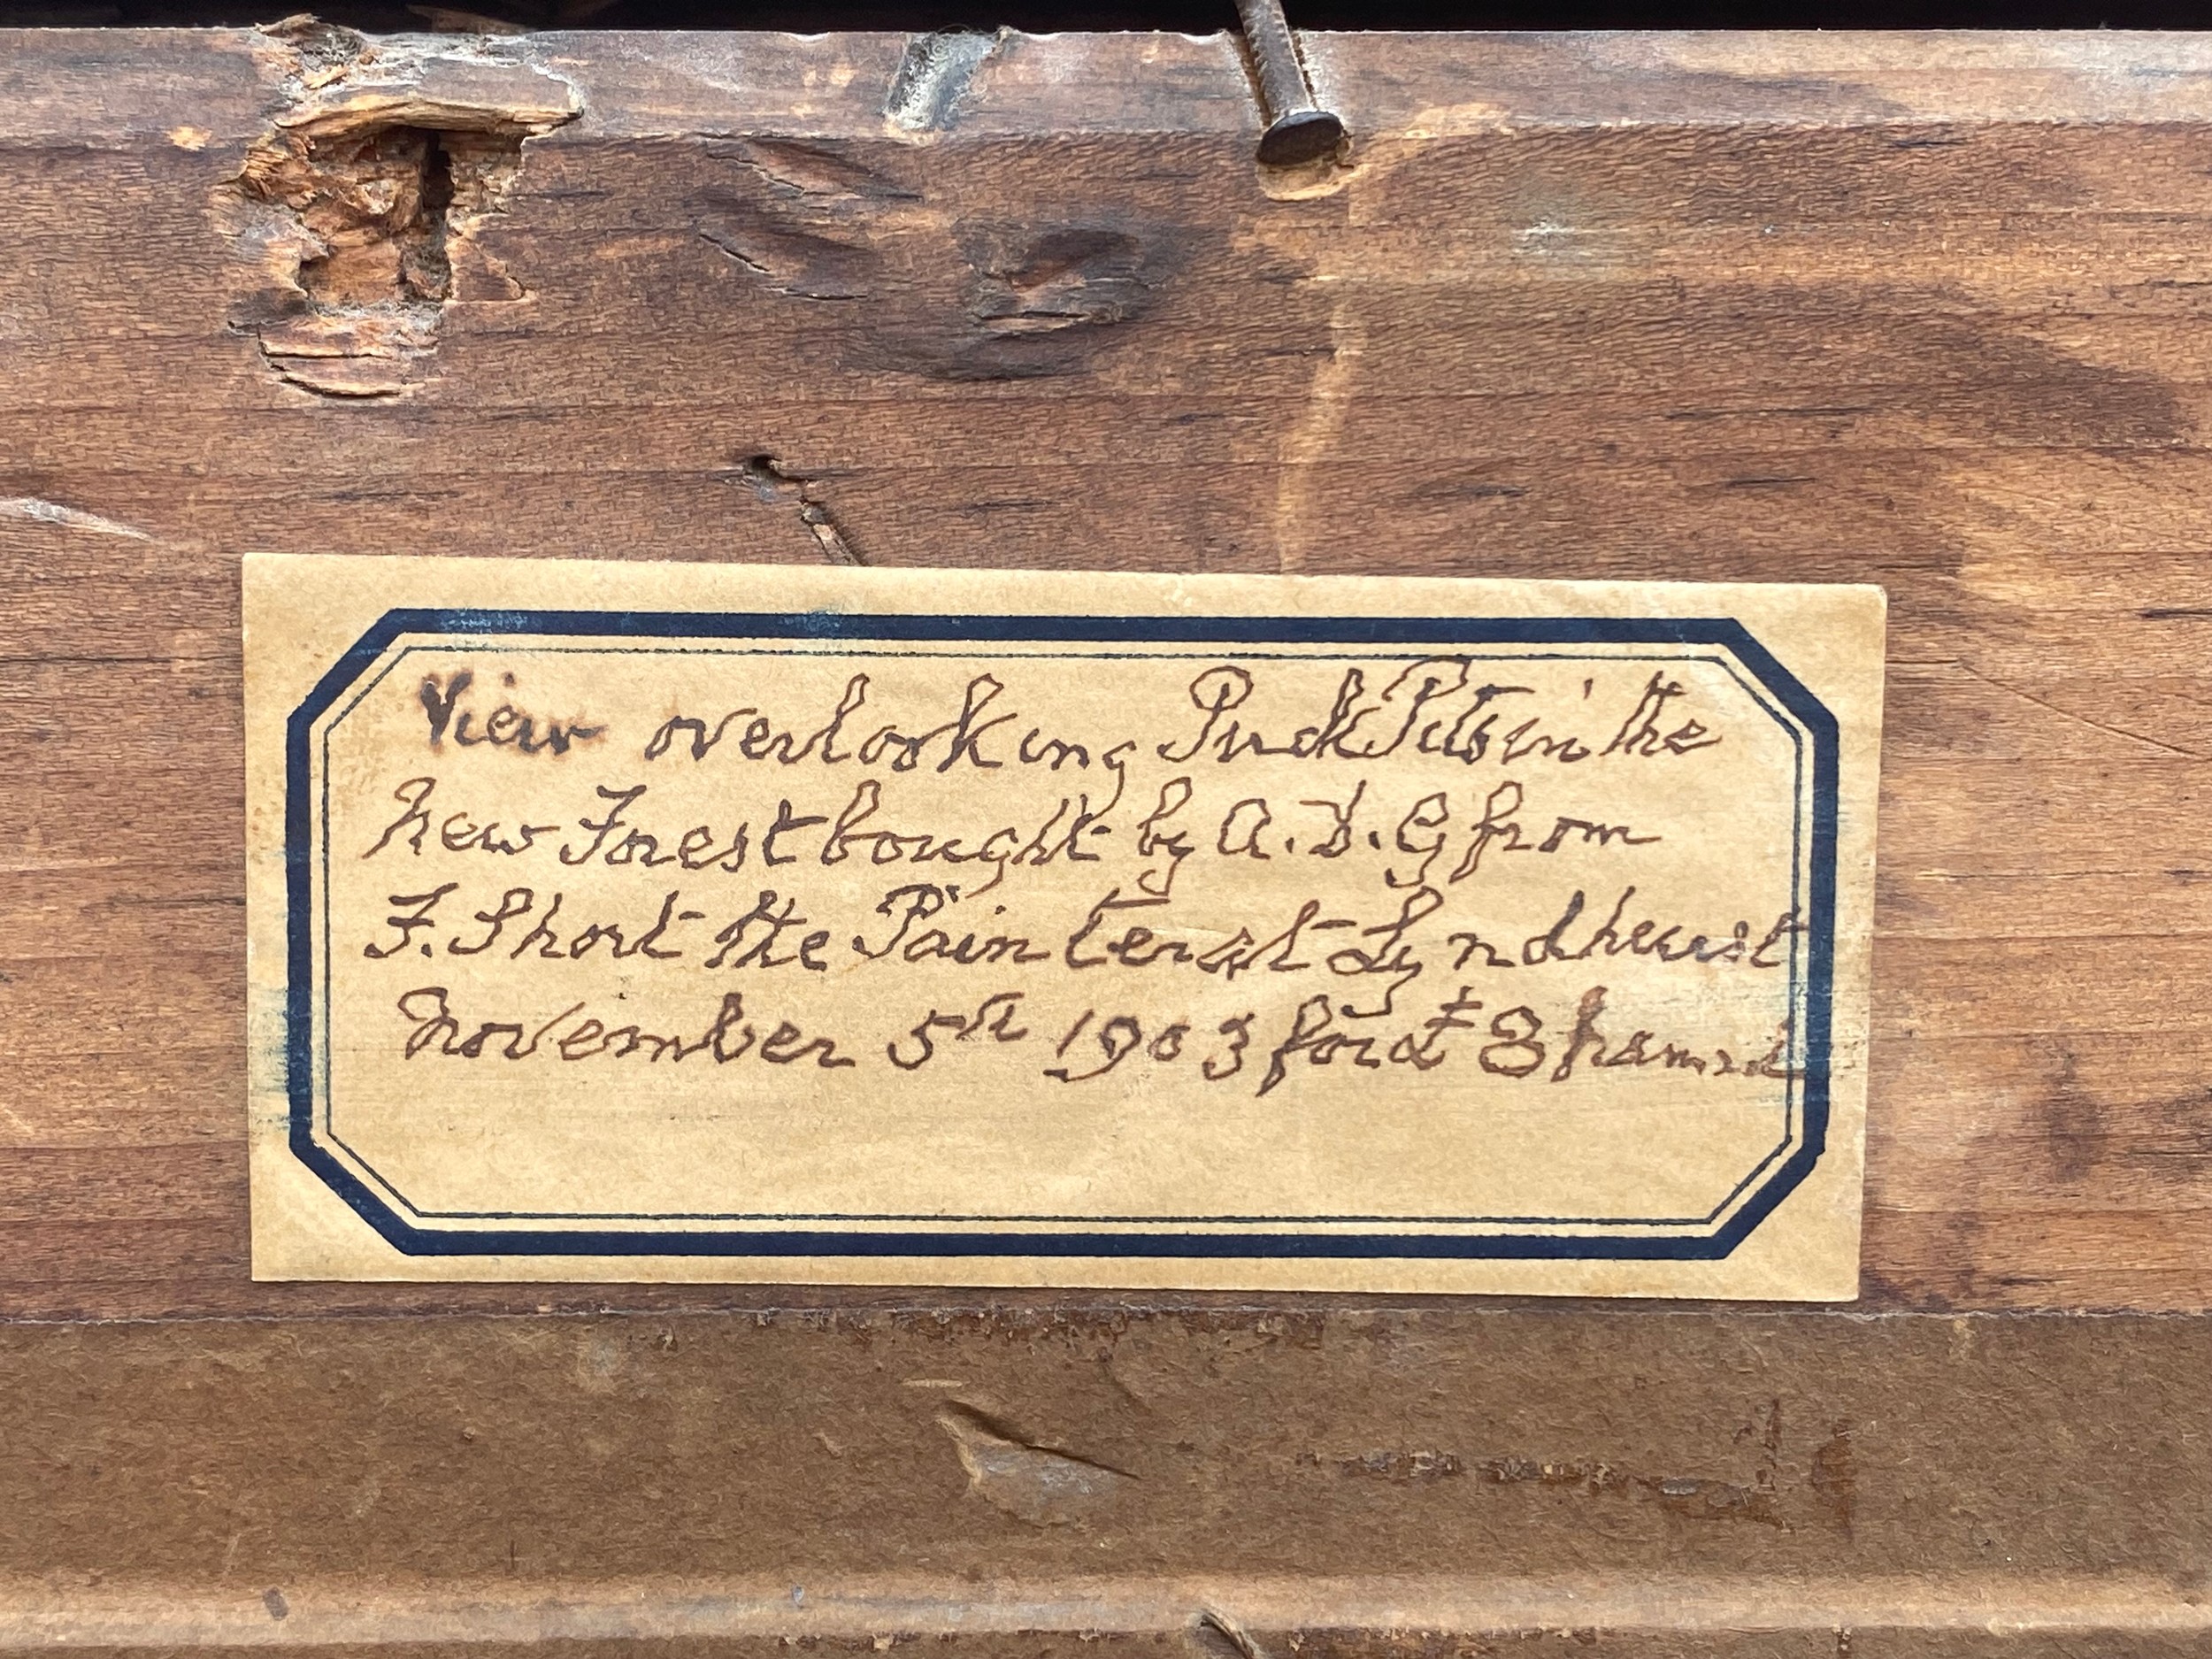 View overlooking Puck Pits in the
New Forest bought by A. D. G from
F. Short the Painter at Lyndhurst
November 5th 1903 for £ 8 framed